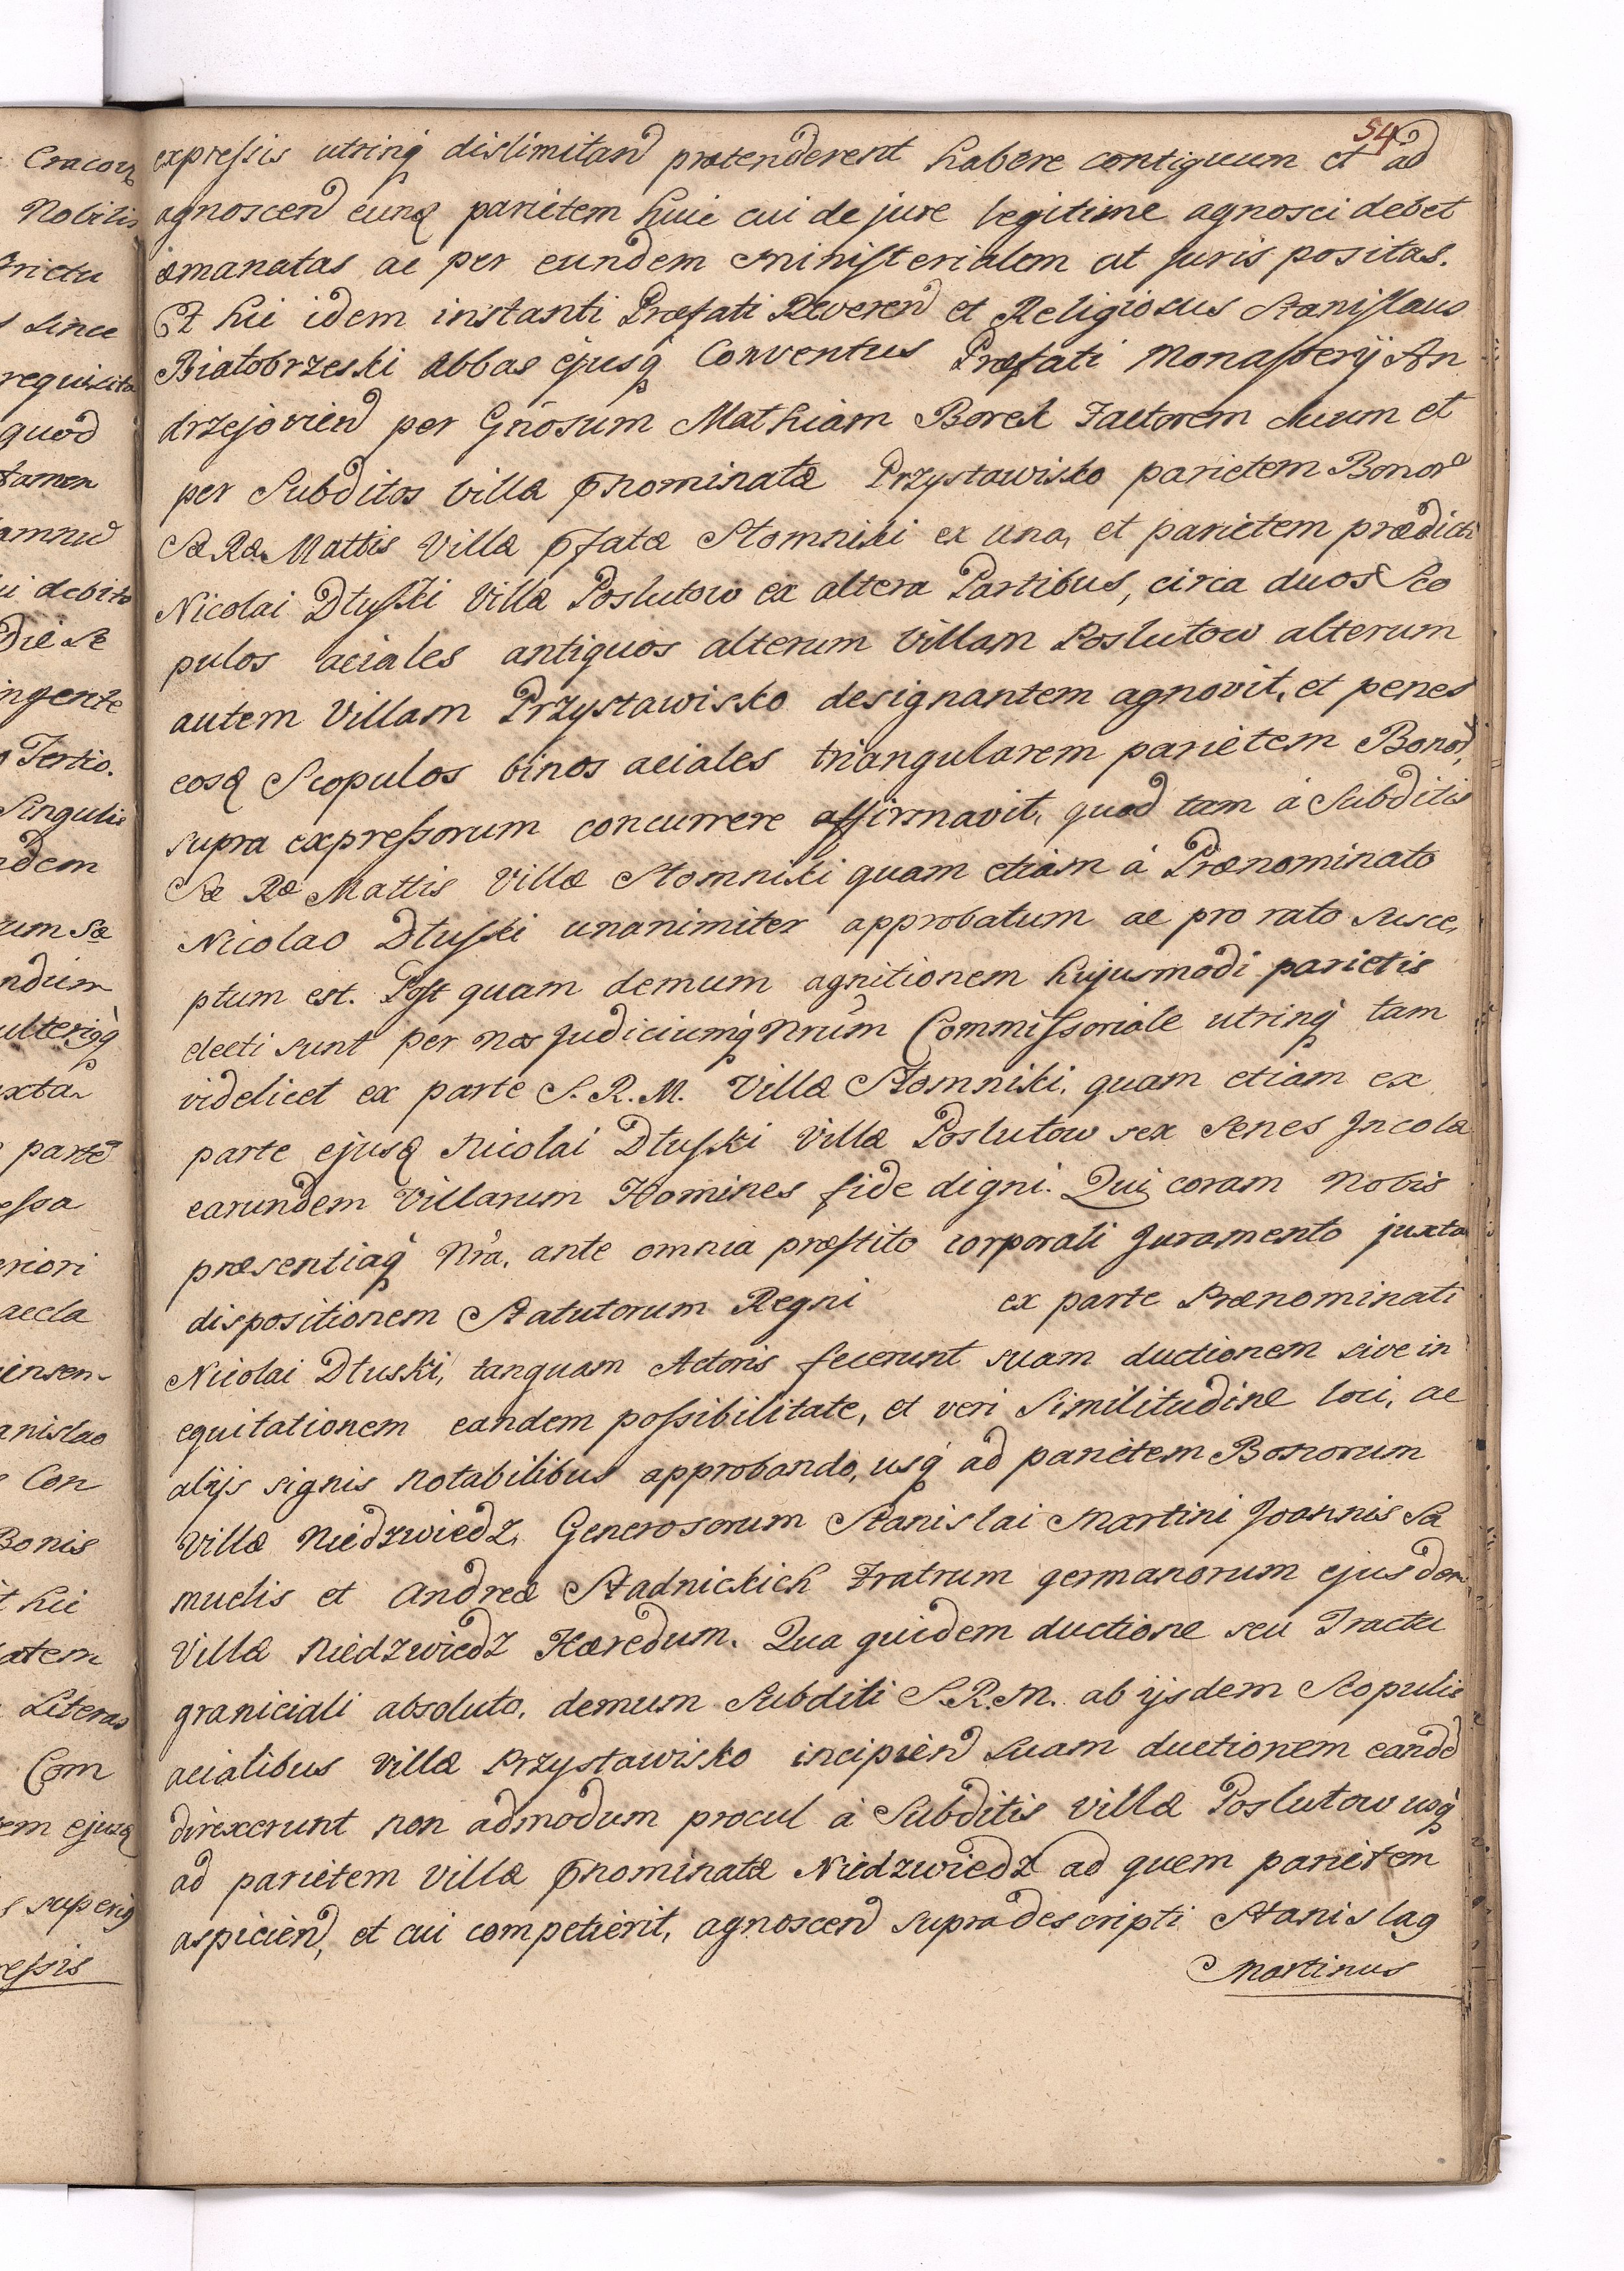 54
expressis utrinq dislimitand prætenderent habere contiguum et ad
agnoscend eunq parietem huic cui de jure legitime agnosci debet
emanatas ac per eundem Ministerialem ut Juris positas.
Et hic idem instanti Præfati Reverend et Religiosus Stanislaus
Białobrzeski Abbas ejusq Conventus Præfati Monasterij An
drzejovien per Gnosum Mathiam Borek Factorem Suum et
per Subditos Villæ pnominatæ Przystawisko parietem Bonor
Sæ Ræ Mattis Villæ pfatæ Słomniki ex una, et parietem prædicti
Nicolai Dłuski Villæ Poslutow ex altera Partibus, circa duos Sco
pulos aciales antiquos alterum Villam Poslutow alterum
autem Villam Przystawisko designantem agnovit, et penes
eosq Scopulos binos aciales triangularem parietem Bonor,
supra expressorum concurrere affirmavit, quod tam à Subditis
Sæ Ræ Mattis Villæ Słomniki quam etiam à Prænominato
Nicolao Dłuski unanimiter approbatum ac pro rato susce,
ptum est. Post quam demum agnitionem hujusmodi parietis
electi sunt per nos Judiciumq Nrum Commissoriale utrinq tam
videlicet ex parte S. R. M. Villæ Słomniki, quam etiam ex
parte ejusq Nicolai Dłuski Villæ Poslutow sex Senes Incolæ
earundem Villarum Homines fide digni. Qui coram Nobis
præsentiaq Nra, ante omnia præstito corporali Juramento juxta
dispositionem Statutorum Regni ex parte Prænominati
Nicolai Dłuski, tanquam Actoris fecerunt suam ductionem sive in
equitationem eandem possibilitate, et veri Similitudine loci, ac
alijs signis notabilibus approbando, usq ad parietem Bonorum
Villæ Niedzwiedz, Generosorum Stanislai Martini Joannis Sa
muelis et Andreæ Stadnickich Fratrum germanorum ejusdem
Villæ Niedzwiedz Hæredum. Qua quidem ductione seu Tractu
graniciali absoluto, demum Subditi S.R.M. ab ijsdem Scopulis
acialibus Villæ Przystawisko incipiend Suam ductionem eandd
direxerunt non admodum procul à Subditis Villæ Poslutow usq
ad parietem Villæ pnominatæ Niedzwiedz ad quem parietem
aspiciend, et cui competierit, agnoscend supradescripti Stanislaq
Martinus